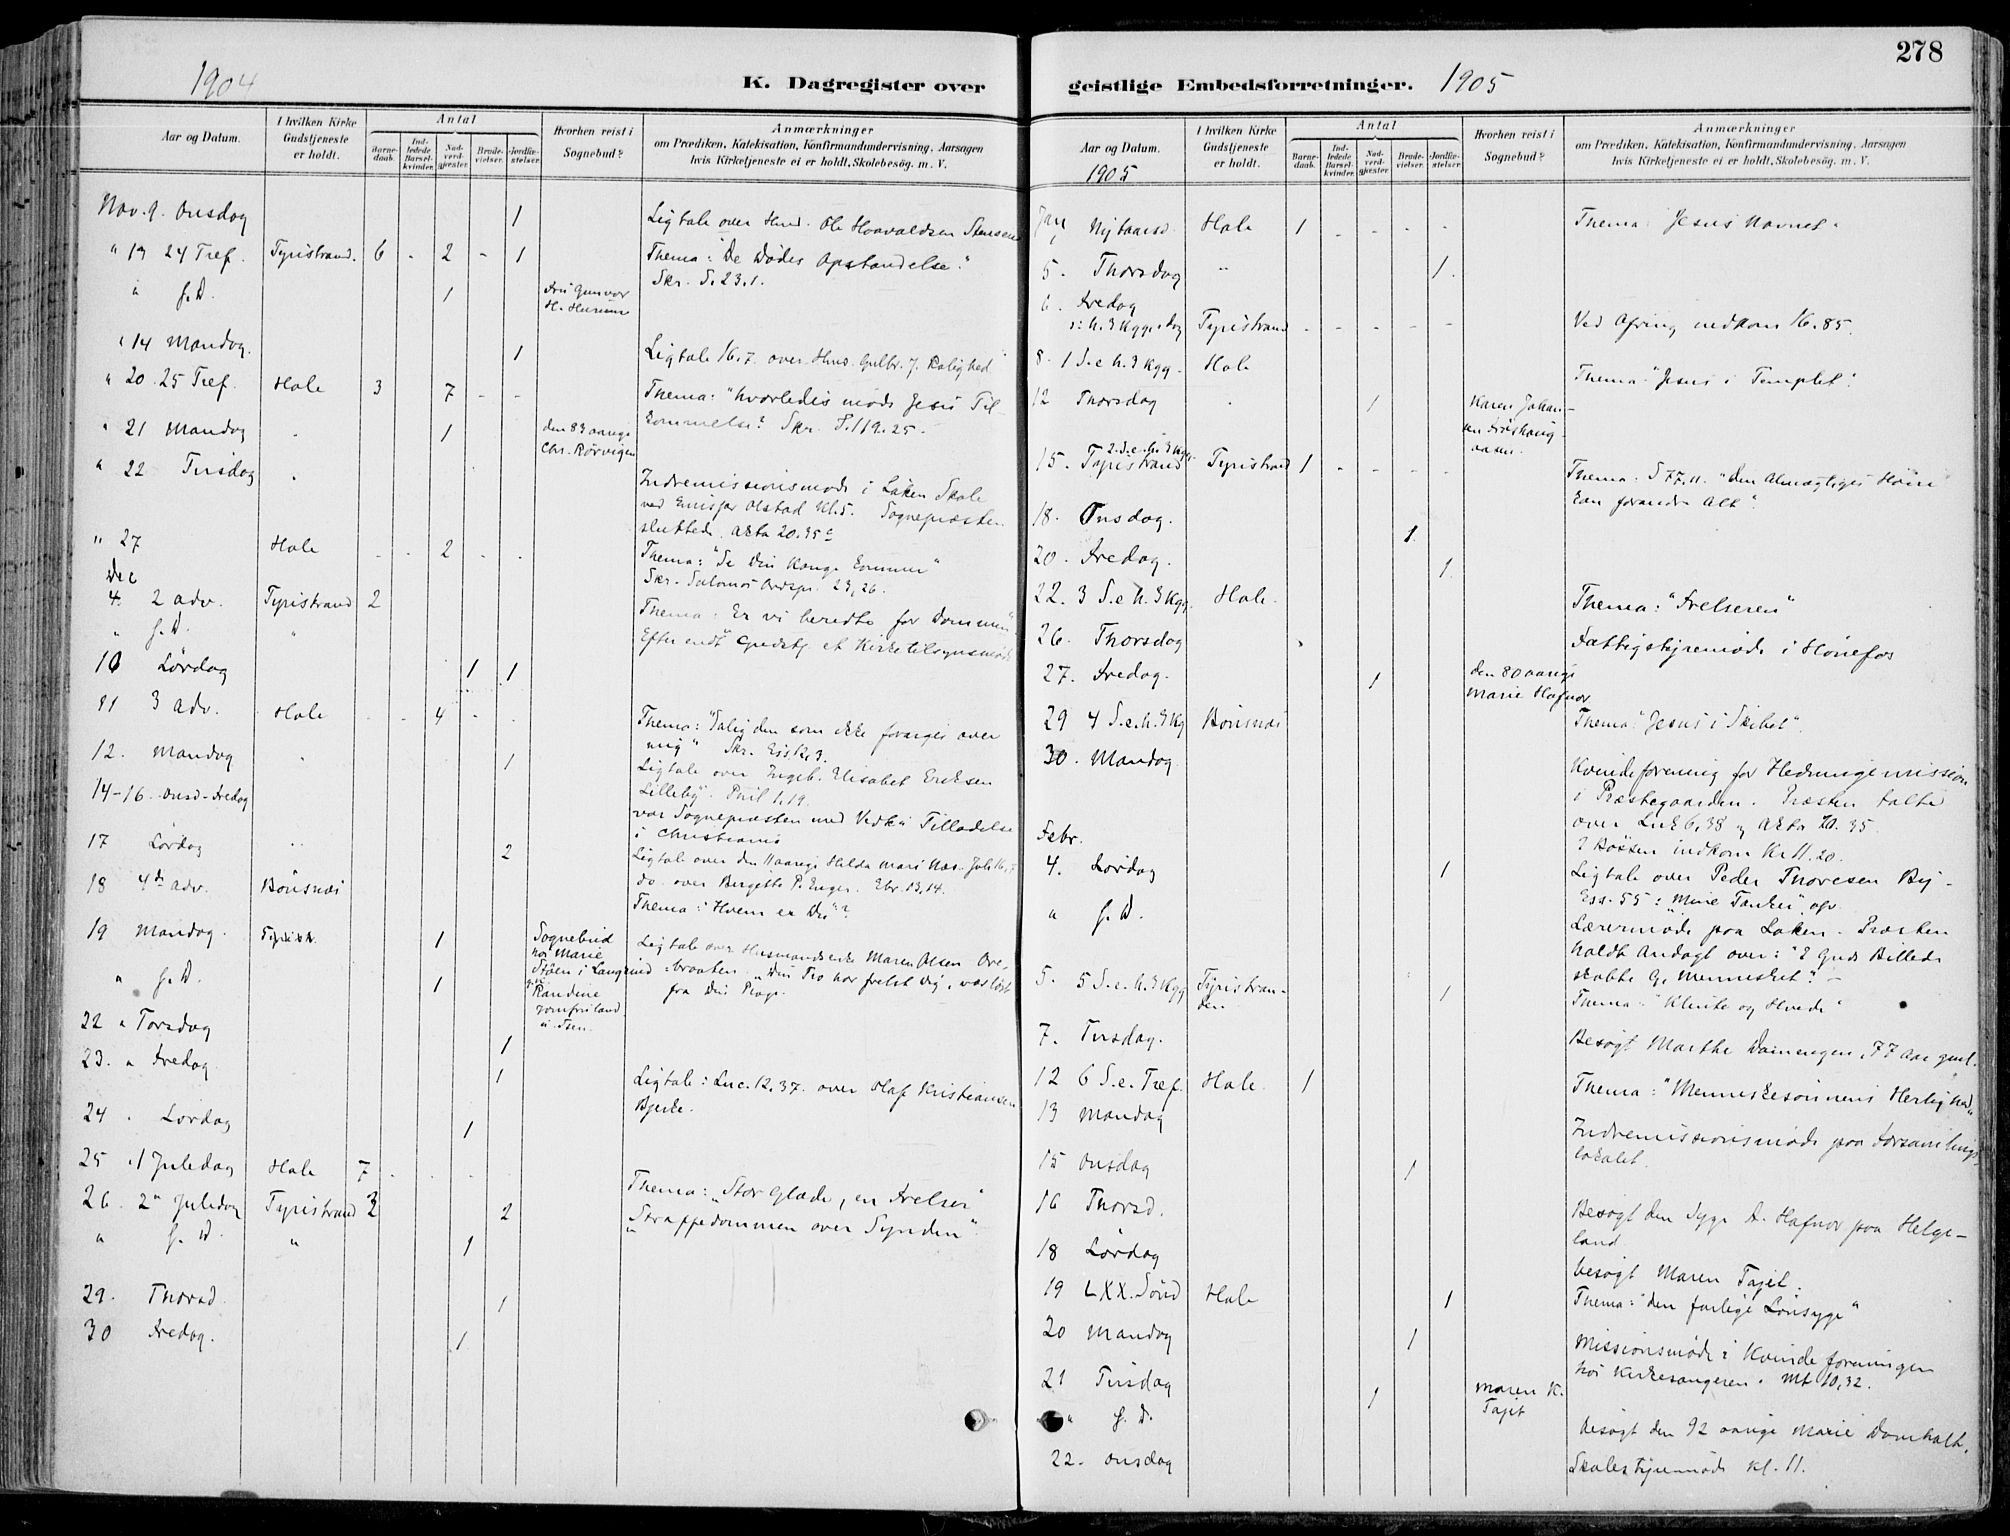 278
1904
K. Dagregister over
geistlige Embedsforretninger. 1905
Aar og Datum.
I hvilken Kirke
Gudstjeneste
er holdt.
Antal
Barne-
daab.
Ind-
ledede
Barsel-
kvinder.
Nad-
verd-
gjester.
Brude-
vielser.
Jordfæ-
stelser.
Hvorhen reist i
Sognebud?
Anmærkninger
om Prædiken, Katekisation, Konfirmandundervisning, Aarsagen
hvis Kirketjeneste ei er holdt, Skolebesög. m. V.
Nov. 9. Onsdag 1 Ligtale over Ole Hovaldsen
" 13 24 Tref. Tyristrand. 6 - 2 - 1 Thema: "De Dødes Opstandelse."
Skr. S. 23.1.
" s. D. 1 Fru Gunvor
H.
" 14 Mandag. 1 Ligtale 16.7. over
" 20. 25 Tref. Hole 3 7 - - Thema: "hvorledes møde Jesu Til-
kommelse? Skr. S. 119.25.
" 21 Mandag 1 den 83 aarige
Chr. Rørvigen
" 22 Tirsdag Indremissionsmøde i Løken Skole
ved Olstad Kl. 5. Sognepræsten
sluttede. Akta 20.35
" 27 Hole - - 2 - - Thema: "Se Din Konge kommer"
Skr. Salomos Ordspr. 23,26.
Dec
4. 2 adv. Tyristrand 2 Thema: Er vi beredte for Dommen"
" s. D. " Efter endt Gudstj. et Kirketilsynsmøde
10 Lørdag 1 1
11 3 adv. Hole - - 4 - - Thema: "Salig den som ikke forarges over
mig"
12. Mandag 1 Ligtale over Ingeb. Elisabet Eriksen
Lilleby. 1.19.
14-16. Onsd-Fredag var Sognepræsten med Tilladelse
i Christiania
17 Lørdag 2 Ligtale over den 11aarige Hilda Mari
do. over Bergitte P. Enger. Ebr. 13.14.
18 4de adv. Bönsnæs Thema: "Hvem er Du"?
19 Mandag. 1 Sognebud
hos Marie
Støen i
Ligtale over Maren Olsen
braaten. "Din Tro har frelst Dig,
fra Din Plage.
" s. D. 1 Randine
22 " Torsdag 1
23. " Fredag 1 Ligtale: Luc. 12.37. over Olaf Kristiansen
Bjerke.
24 . Lørdag 1
25 . 1 Juledag Hole 7 Thema: "Stor Glæde, en Frelser"
26. 2" Juledag Tyristrand 3 2 "Straffedommen over Synden".
" s. D. " 1
29. Thorsd. 1
30 Fredag. 1
Aar og Datum.
1905
I hvilken Kirke
Gudstjeneste
er holdt.
Antal
Barne-
daab.
Ind-
ledede
Barsel-
kvinder.
Nad-
verd-
gjester.
Brude-
vielser.
Jordfæ-
stelser.
Hvorhen reist i
Sognebud?
Anmærkninger
om Prædiken, Katekisation, Konfirmandundervisning, Aarsagen
hvis Kirketjeneste ei er holdt, Skolebesög. m. V.
Jan
1 Nytaarsd. Hole 1 - - - - Thema: Jesus Navnet.
5. Thorsdag " 1.
6. Fredag
Tyristrand - - - - - Ved Ofring indkom 16.85.
8. 1 S. e. h. 3 Kgg. Hole Thema: "Jesus i Templet".
12 Thorsdag 1 Karen Johan-
sen
15. 2. S. e. h. 3 Kgg.
Tyristrand Tyristrand 1 - - - - Thema: S 77.11. "Den Almægtiges Høire
kan forandre Alt".
18. Onsdag. 1
20. Fredag. 1
22. 3 S. e. h. 3 Kgg. Hole. Thema: "Frelseren"
26. Thorsdag Fattigstyremøde i Hönefos
27. Fredag. 1 den 80 aarige
Marie Hafnor
29 4 S. e. h. 3 Kg Bönsnæs Thema: "Jesus i Skibet".
30. Mandag Kvindeforening for Hedningemission
i Præstegaarden. Præsten talte
over Luk 6,38 og Akta 20.35.
I Bøssen indkom Kr 11.20.
Febr.
4. Lørdag 1 Ligtale over Peder Thoresen By-
Ess. 55: "Mine Tanker" osv.
" s. D. Lærermøde paa Løken. Præsten
holdt Andagt over: "I Guds Billede
skabte G. Mennesket".-
5. 5 S. e. h. 3 Kgg Tyristran-
den 1 Thema: "Klinte og Hvede"
7. Tirsdag. Besøgt Marthe 77 Aar gml.
12 6 S. e. Tref. Hole. 1 Thema: "Menneskesønnens Herlighed"
13 Mandag Indremissionsmøde paa Forsamlings-
lokalet.
15 Onsdag 1
16 Thorsd. Besøgt den syge A. Hafnor paa Helge-
land.
18 Lørdag besøgt Maren Fajet.
19 LXX. Sønd Hole 1 Thema: "den farlige Lønsyge"
20 Mandag 1 Missionsmøde i Kvindeforeningen
hos Kirkesangeren. Mt 10,32.
21 Tirsdag 1 Maren K.
Fajet
" s. D. Besøgt den 92 aarige Marie Domholt.
22. Onsdag Skolestyremøde kl. 11.